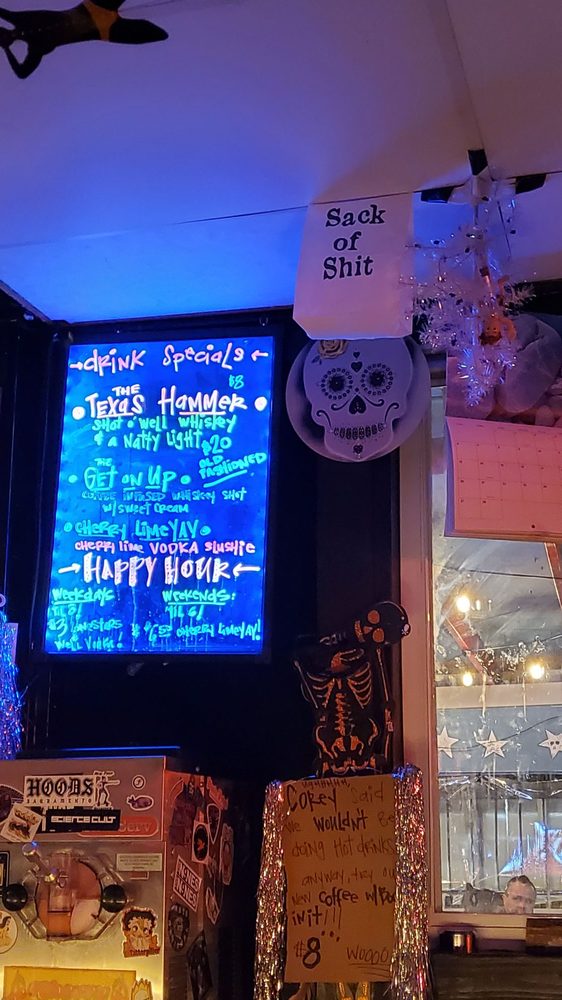 Sack
of
Shit
→DRINK SPECIALS←
$8
THE
TEXAS HAMMER
SHOT O' WELL WHISKEY
& a NATTY LIGHT
$20
OLD
FASHIONED
THE
GET ON UP
COFFEE INFUSED WHISKEY SHOT
W/SWEET CREAM
CHERRY LIMEYAY
CHERRY LIME VODKA SLUSHIE
→HAPPY HOUR←
WEEKDAYS:
WEEKENDS:
TIL 6/
$3
CHERRY LIMEYAY!
WELL VODKA!
HOODS
SACRAMENTO
SCIENCE CULT
COREY Said
We WOULDN'T Be
doing Hot drinks
anyway, they
new COFFEE W/
in it!!!
$8
WOOOO